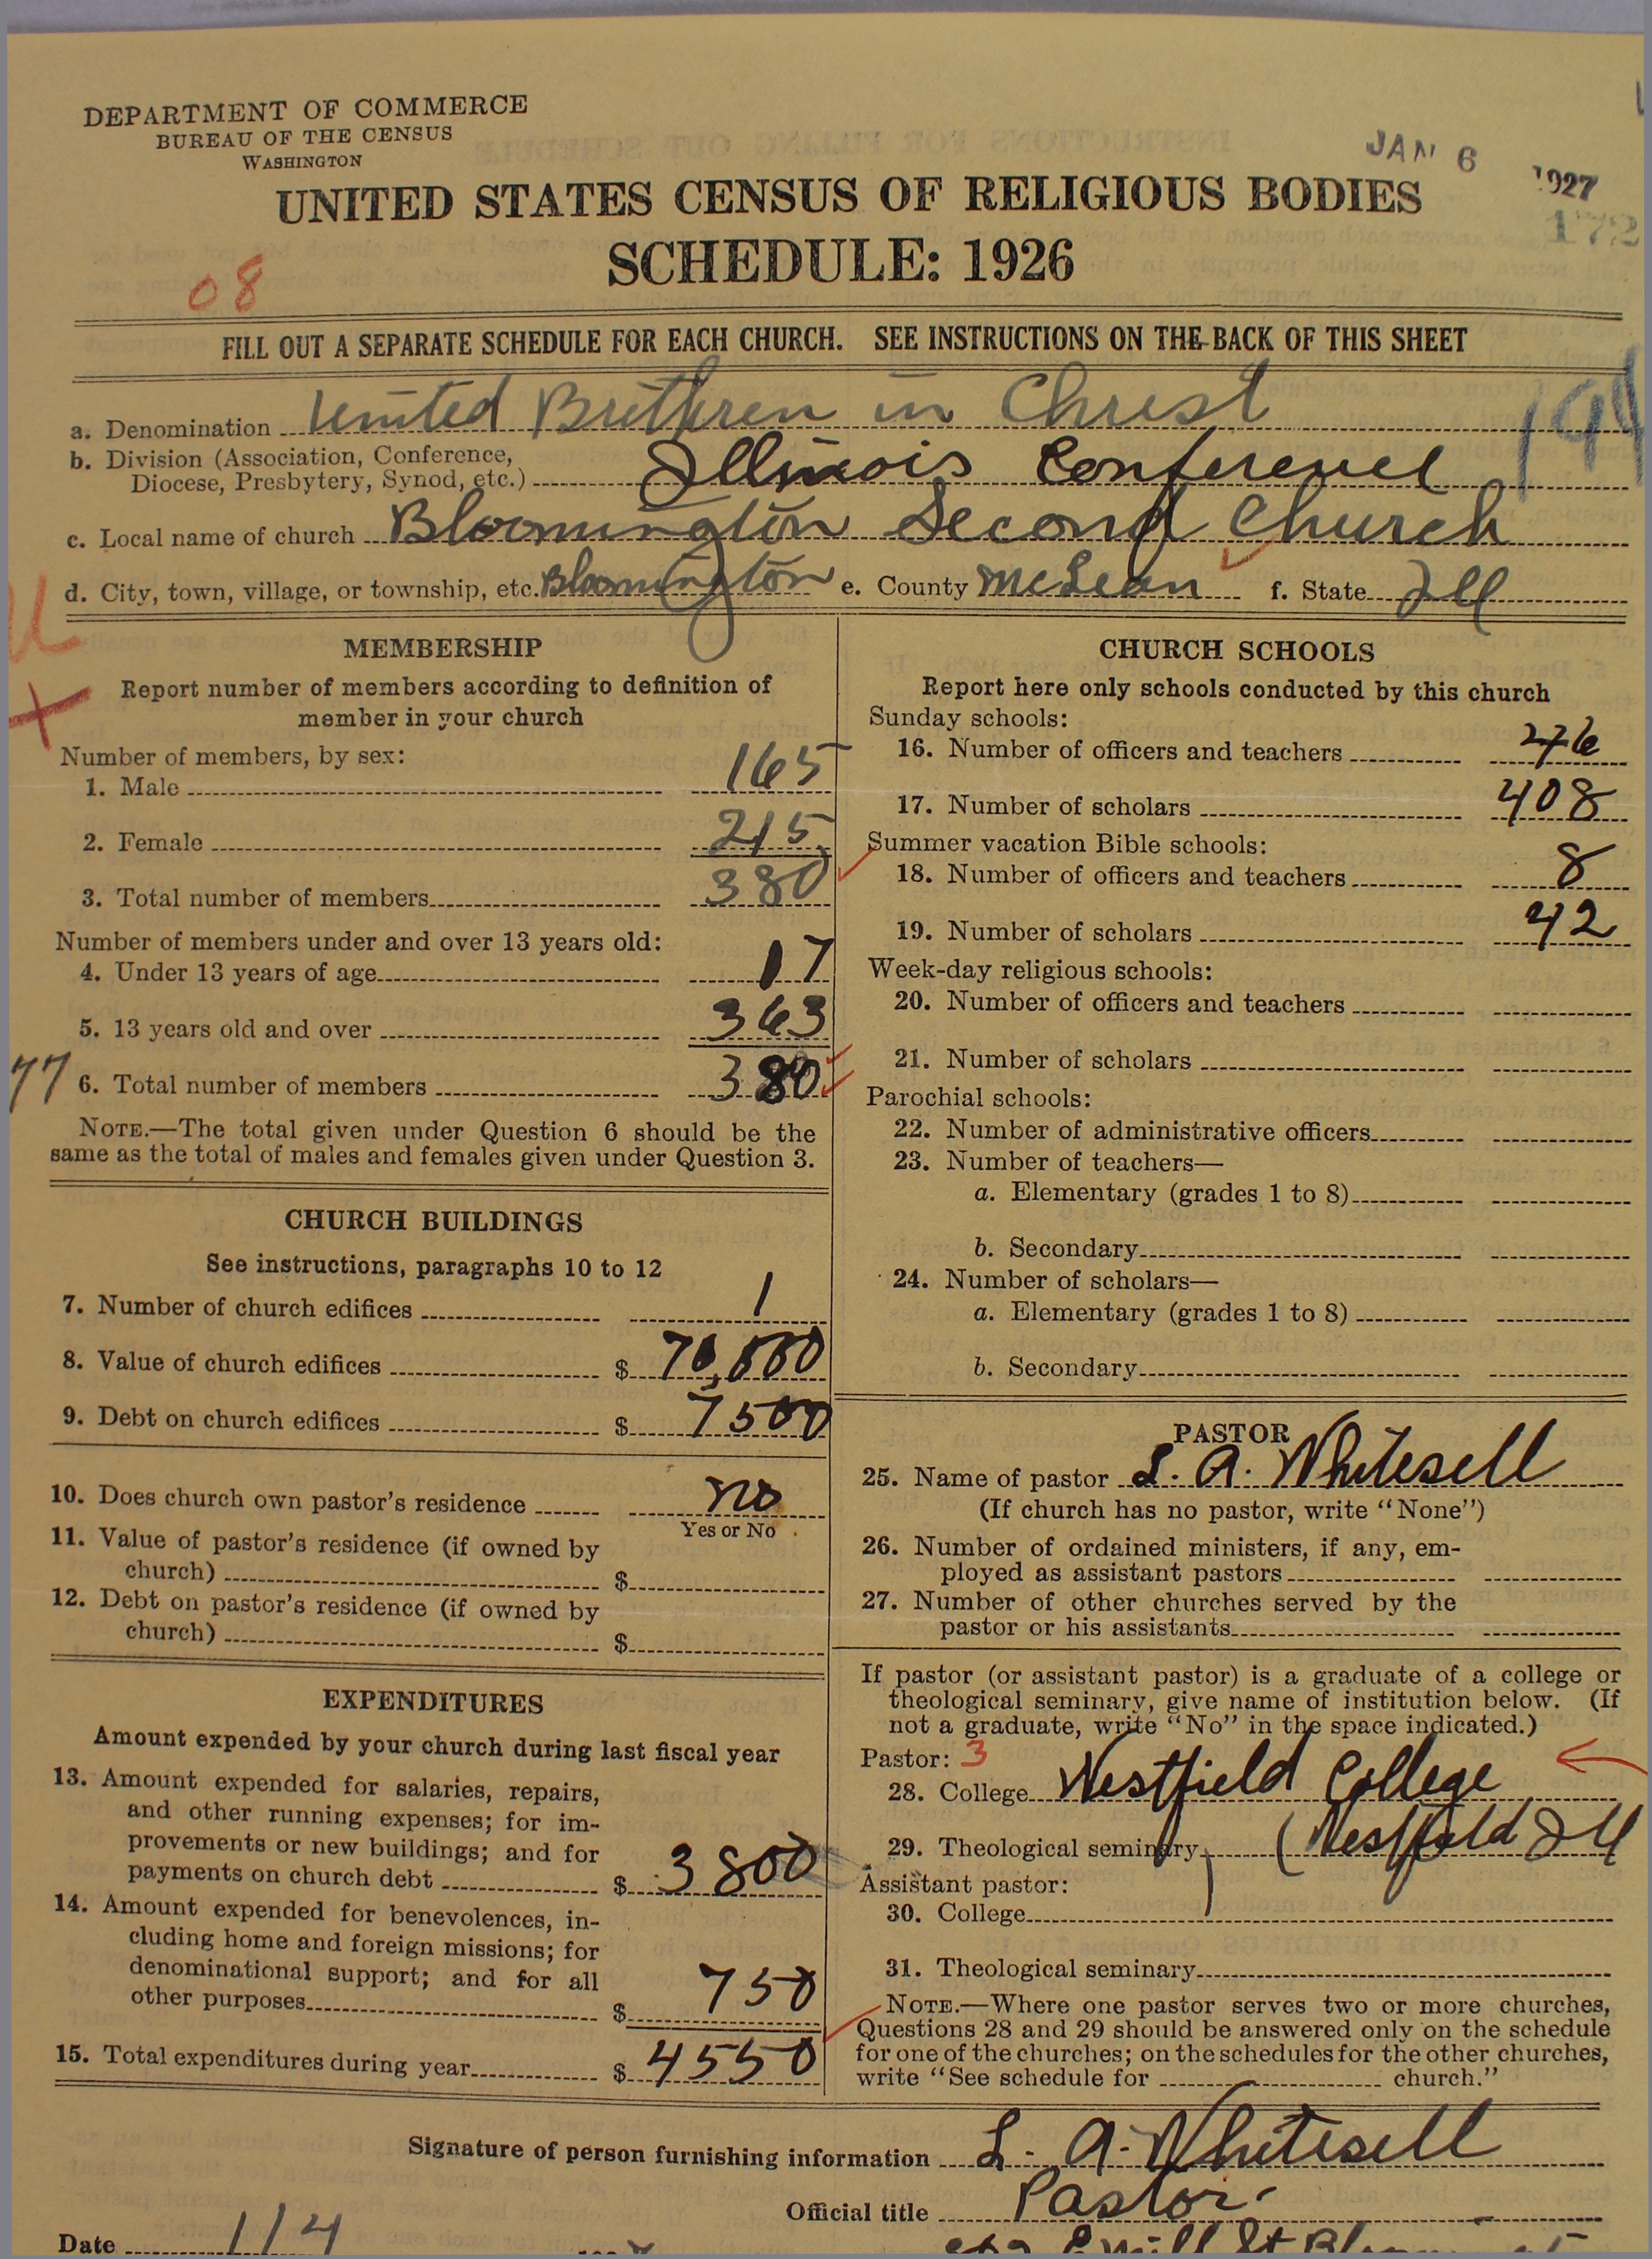 DEPARTMENT OF COMMERCE
BUREAU OF THE CENSUS
WASHINGTON
JAN 6 1927
172
UNITED STATES CENSUS OF RELIGIOUS BODIES
SCHEDULE: 1926
08
FILL OUT A SEPARATE SCHEDULE FOR EACH CHURCH. SEE INSTRUCTIONS ON THE BACK OF THIS SHEET
a. Denomination United Brethren in Christ
b. Division (Association, Conference,
Diocese, Presbytery, Synod, etc.) Illinois Conference
c. Local name of church Bloomington Second Church
d. City, town, village, or township, etc. Bloomington e. County McLean f. State Ill
MEMBERSHIP
Report number of members according to definition of
member in your church
Number of members, by sex:
1. Male 165
2. Female 215
3. Total number of members 380
Number of members under and over 13 years old:
4. Under 13 years of age 17
5. 13 years old and over 363
77 6. Total number of members 380
NOTE.—The total given under Question 6 should be the
same as the total of males and females given under Question 3.
CHURCH BUILDINGS
See instructions, paragraphs 10 to 12
7. Number of church edifices 1
8. Value of church edifices $ 70,000
9. Debt on church edifices $ 7500
10. Does church own pastor's residence no
Yes or No
11. Value of pastor's residence (if owned by
church) $
12. Debt on pastor's residence (if owned by
church) $
EXPENDITURES
Amount expended by your church during last fiscal year
13. Amount expended for salaries, repairs,
and other running expenses; for im-
provements or new buildings; and for
payments on church debt $ 3800
14. Amount expended for benevolences, in-
cluding home and foreign missions; for
denominational support; and for all
other purposes $ 750
15. Total expenditures during year $ 4550
CHURCH SCHOOLS
Report here only schools conducted by this church
Sunday schools:
16. Number of officers and teachers
17. Number of scholars 408
Summer vacation Bible schools:
18. Number of officers and teachers 8
19. Number of scholars 42
Week-day religious schools:
20. Number of officers and teachers
21. Number of scholars
Parochial schools:
22. Number of administrative officers
23. Number of teachers—
a. Elementary (grades 1 to 8)
b. Secondary
24. Number of scholars—
a. Elementary (grades 1 to 8)
b. Secondary
PASTOR
25. Name of pastor L. A. Whitesell
(If church has no pastor, write "None")
26. Number of ordained ministers, if any, em-
ployed as assistant pastors
27. Number of other churches served by the
pastor or his assistants
If pastor (or assistant pastor) is a graduate of a college or
theological seminary, give name of institution below. (If
not a graduate, write "No" in the space indicated.)
Pastor: 3
28. College Westfield College
29. Theological seminary (Westfield Ill
Assistant pastor:
30. College
31. Theological seminary
NOTE.—Where one pastor serves two or more churches,
Questions 28 and 29 should be answered only on the schedule
for one of the churches; on the schedules for the other churches,
write "See schedule for church."
Signature of person furnishing information L. A. Whitesell
Official title Pastor
Date 1/4